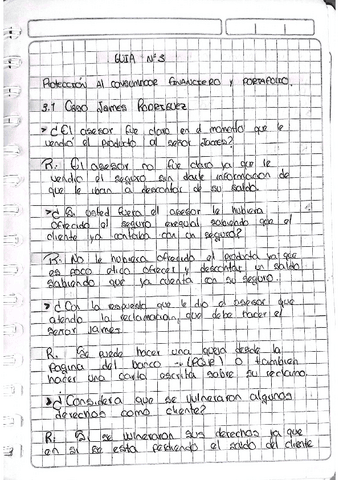 GUIA N°3
PROTECCIÓN AL CONSUMIDOR FINANCIERO Y PORTAFOLIO.
3.1 Caso James Rodriguez
> ¿El asesor fue claro en el momento que le
vendió el producto al señor James?
R: El asesor no fue claro ya que le
vendio el seguro sin darle informacion de
que le iban a descontar de su saldo.
> ¿Si usted fuera el asesor le hubiera
ofrecido el seguro exequial sabiendo que el
cliente ya contaba con un seguro?
R: No le hubiera ofrecido el producto ya que
es poco etico ofrecer y descontar un saldo
sabiendo que ya cuenta con su seguro.
> ¿Con la respuesta que le dio el asesor que
atendio la reclamacion, que debe hacer el
señor James.
R. Se puede hacer una queja desde la
Pagina del banco - (PQR) o tambien
hacer una carta escrita sobre su reclamo.
> ¿Considera que se vulneraron algunos
derechos como cliente?
R: Si se vulneraron sus derechos ya que
en si se esta perdiendo el saldo del cliente